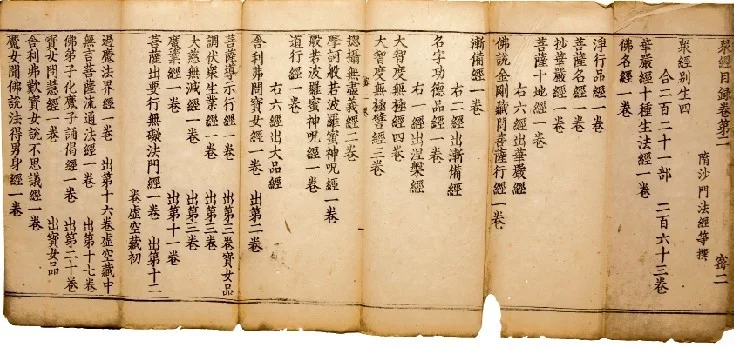 眾經目錄卷第二 密二
隋沙門法經等撰
眾經別生四
合二百二十一部 二百六十三卷
華嚴經十種生法經一卷
佛名經一卷
淨行品經一卷
菩薩名經一卷
抄華嚴經一卷
菩薩十地經一卷
右六經出華嚴經
佛說金剛藏問菩薩行經一卷
漸備經一卷
右二經出漸備經
名字功德品經一卷
右一經出涅槃經
大智度無極經四卷
大智度無極譬經三卷
摠攝無盡義經二卷
摩訶般若波羅蜜神呪經一卷
般若波羅蜜神呪經一卷
道行經一卷
右六經出大品經
舍利弗問寶女經一卷 出第二卷
菩薩導示行經一卷 出第三卷寶女品
調伏眾生業經一卷 出第三卷
大慈無減經一卷 出第三卷
魔業經一卷 出第十一卷
菩薩出要行無礙法門經一卷 出第十二
卷虛空藏初
過魔法界經一卷 出第十六卷虛空藏中
無言菩薩流通法經一卷 出第十七卷
佛弟子化魔子誦偈經一卷 出第二十卷
寶女問慧經一卷 出寶女品
舍利弗歎寶女說不思議經一卷
魔女聞佛說法得男身經一卷